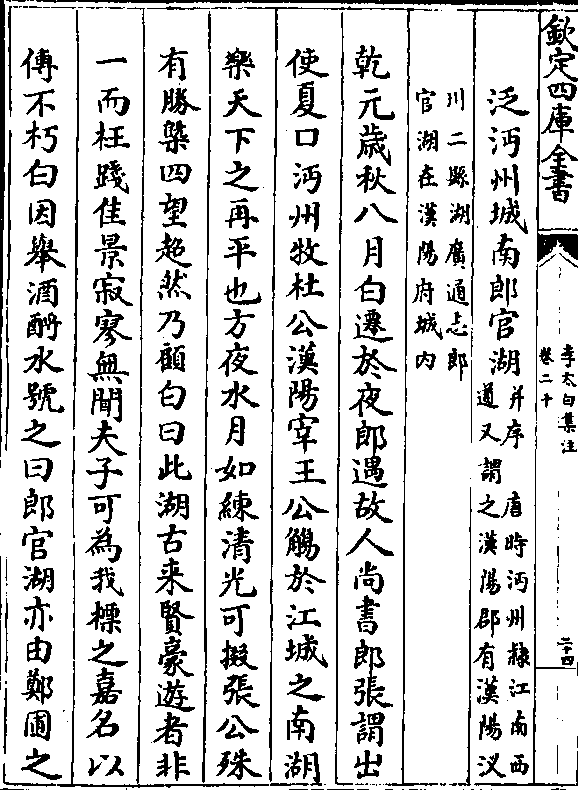 欽定四庫全書
李太白集注
卷二十
二十四
泛沔州城南郎官湖
并序 唐時沔州隸江南西
道又謂之漢陽郡有漢陽汊
川二縣湖廣通志郎
官湖在漢陽府城内
乾元歳秋八月白遷於夜郎遇故人尚書郎張謂出
使夏口沔州牧杜公漢陽宰王公觴於江城之南湖
樂天下之再平也方夜水月如練清光可掇張公殊
有勝槩四望超然乃顧白曰此湖古来賢豪遊者非
一而枉踐佳景寂寥無聞夫子可為我標之嘉名以
傳不朽白因舉酒酹水號之曰郎官湖亦由鄭圃之